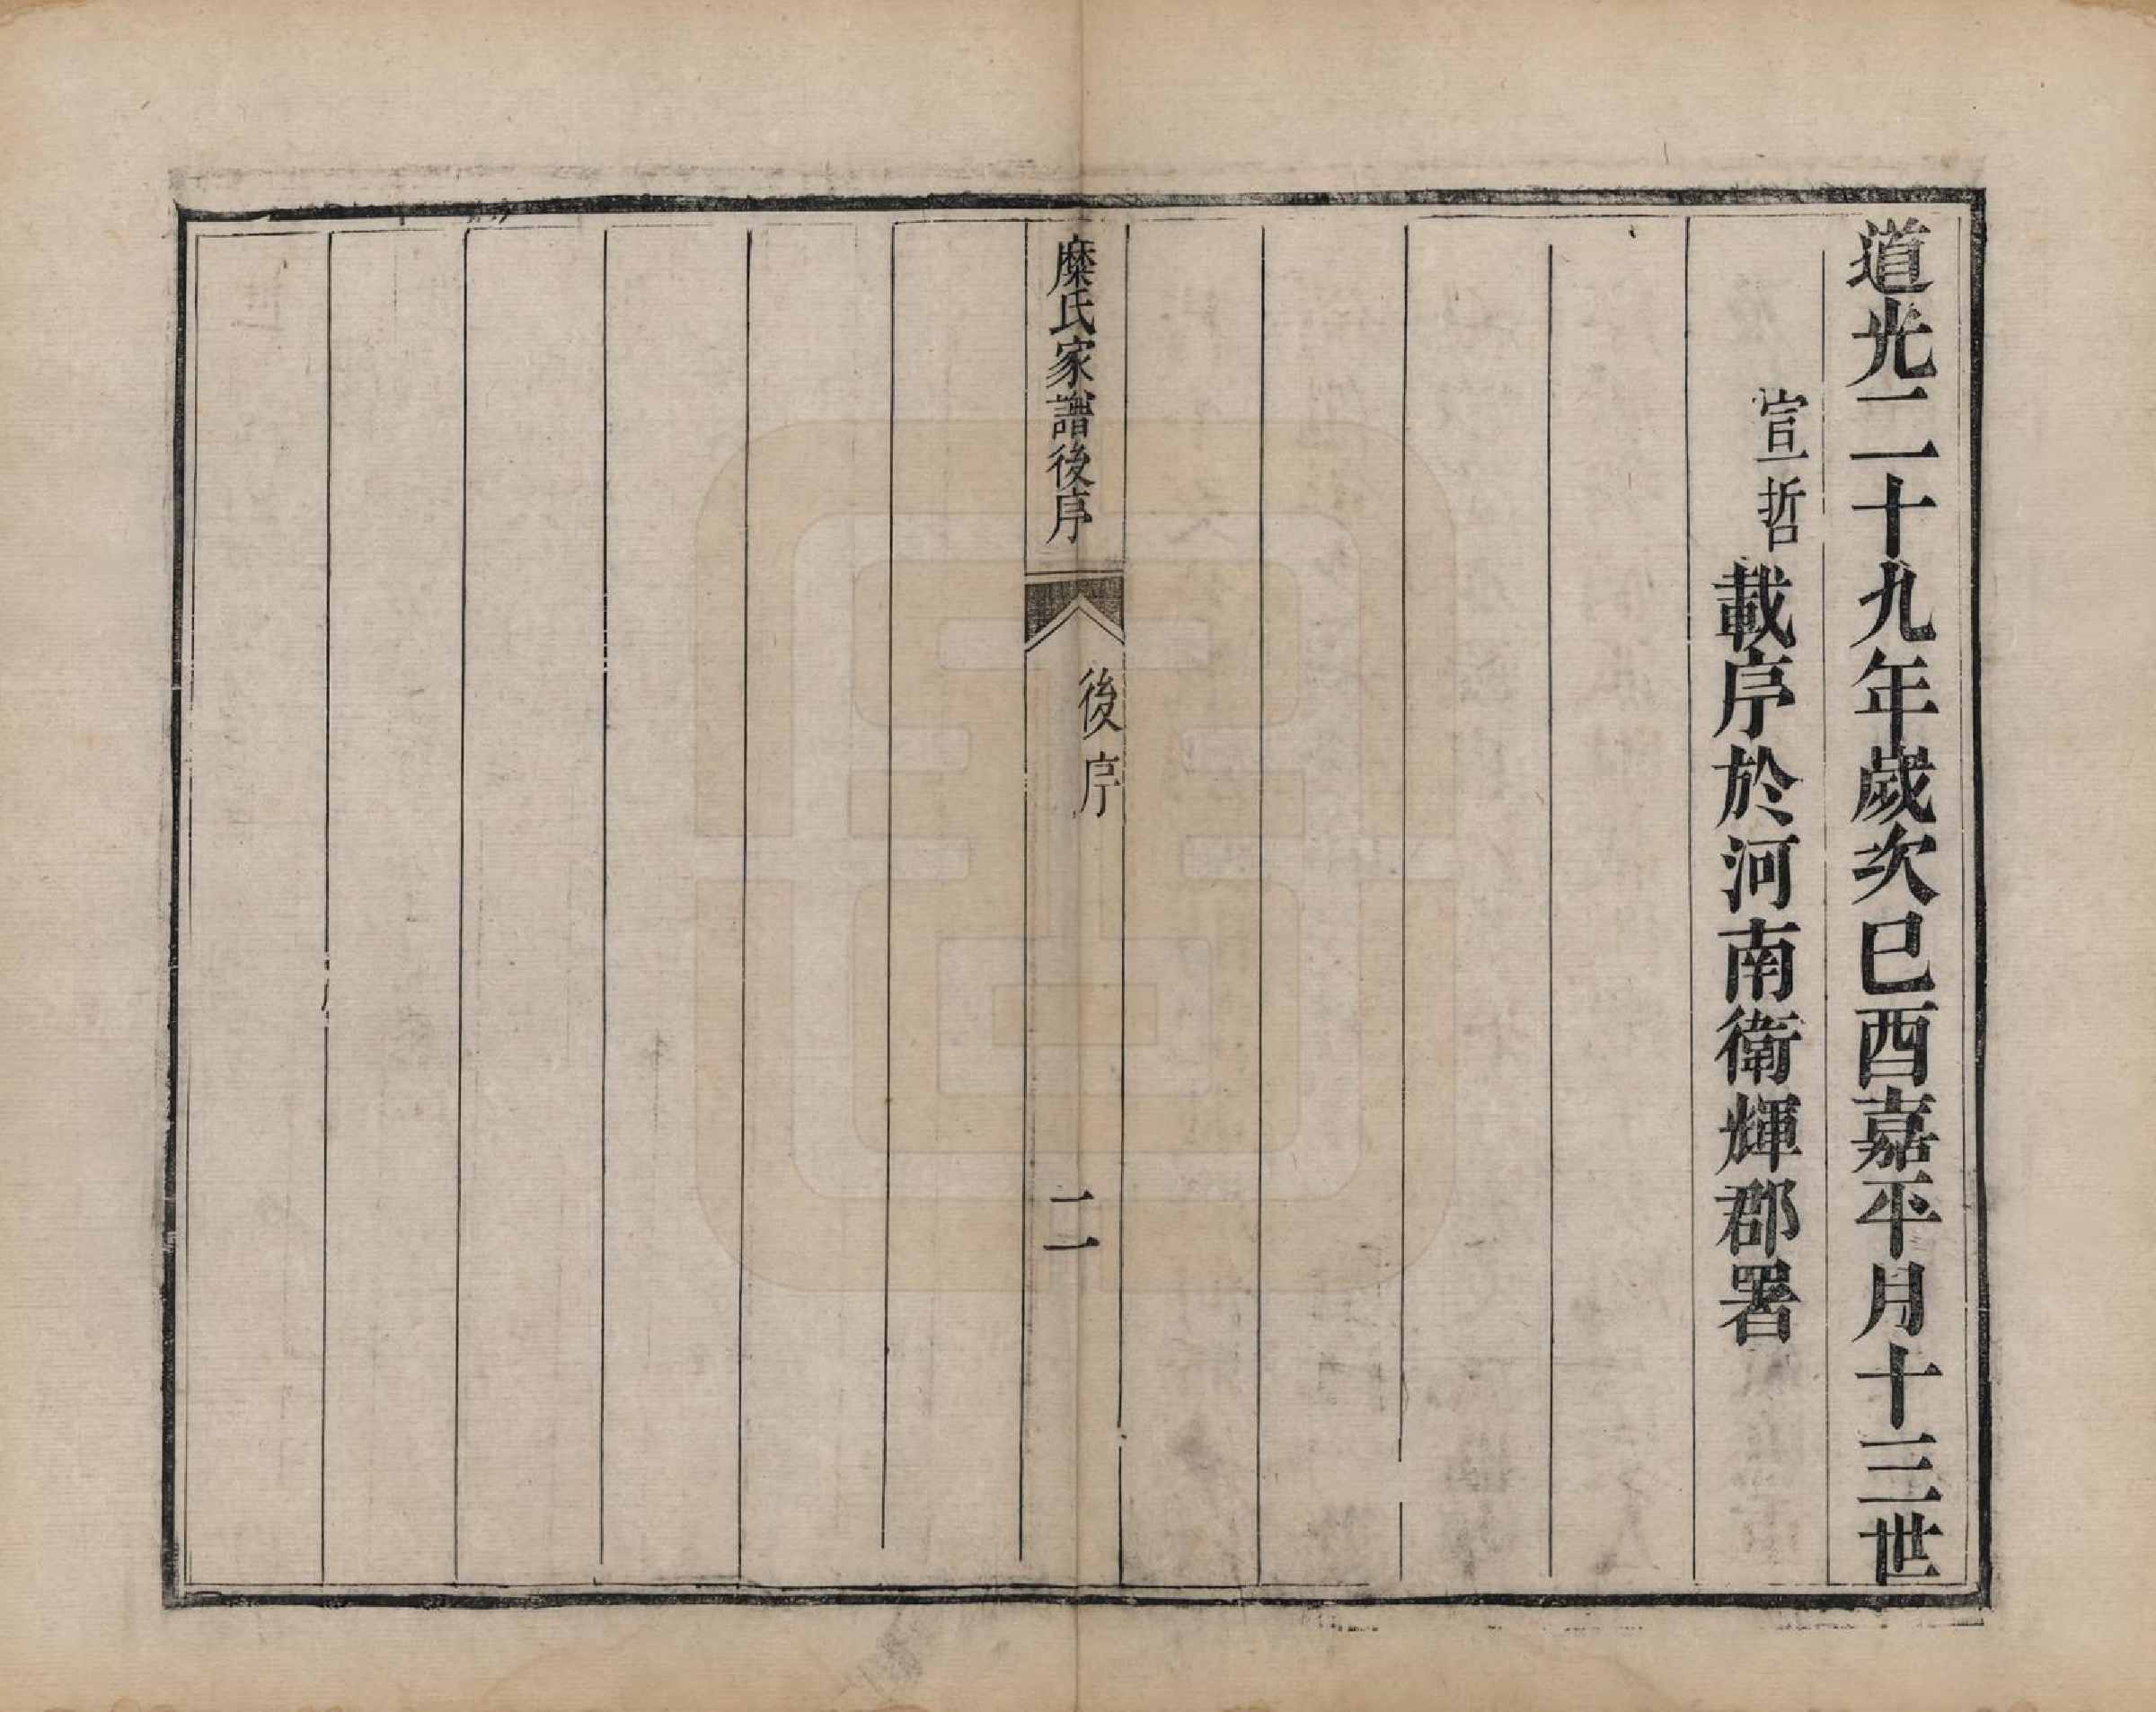 道光二十九年歲次已酉嘉平月十三世
宣哲載序於河南衛輝郡署
糜氏家譜後序
後序
二